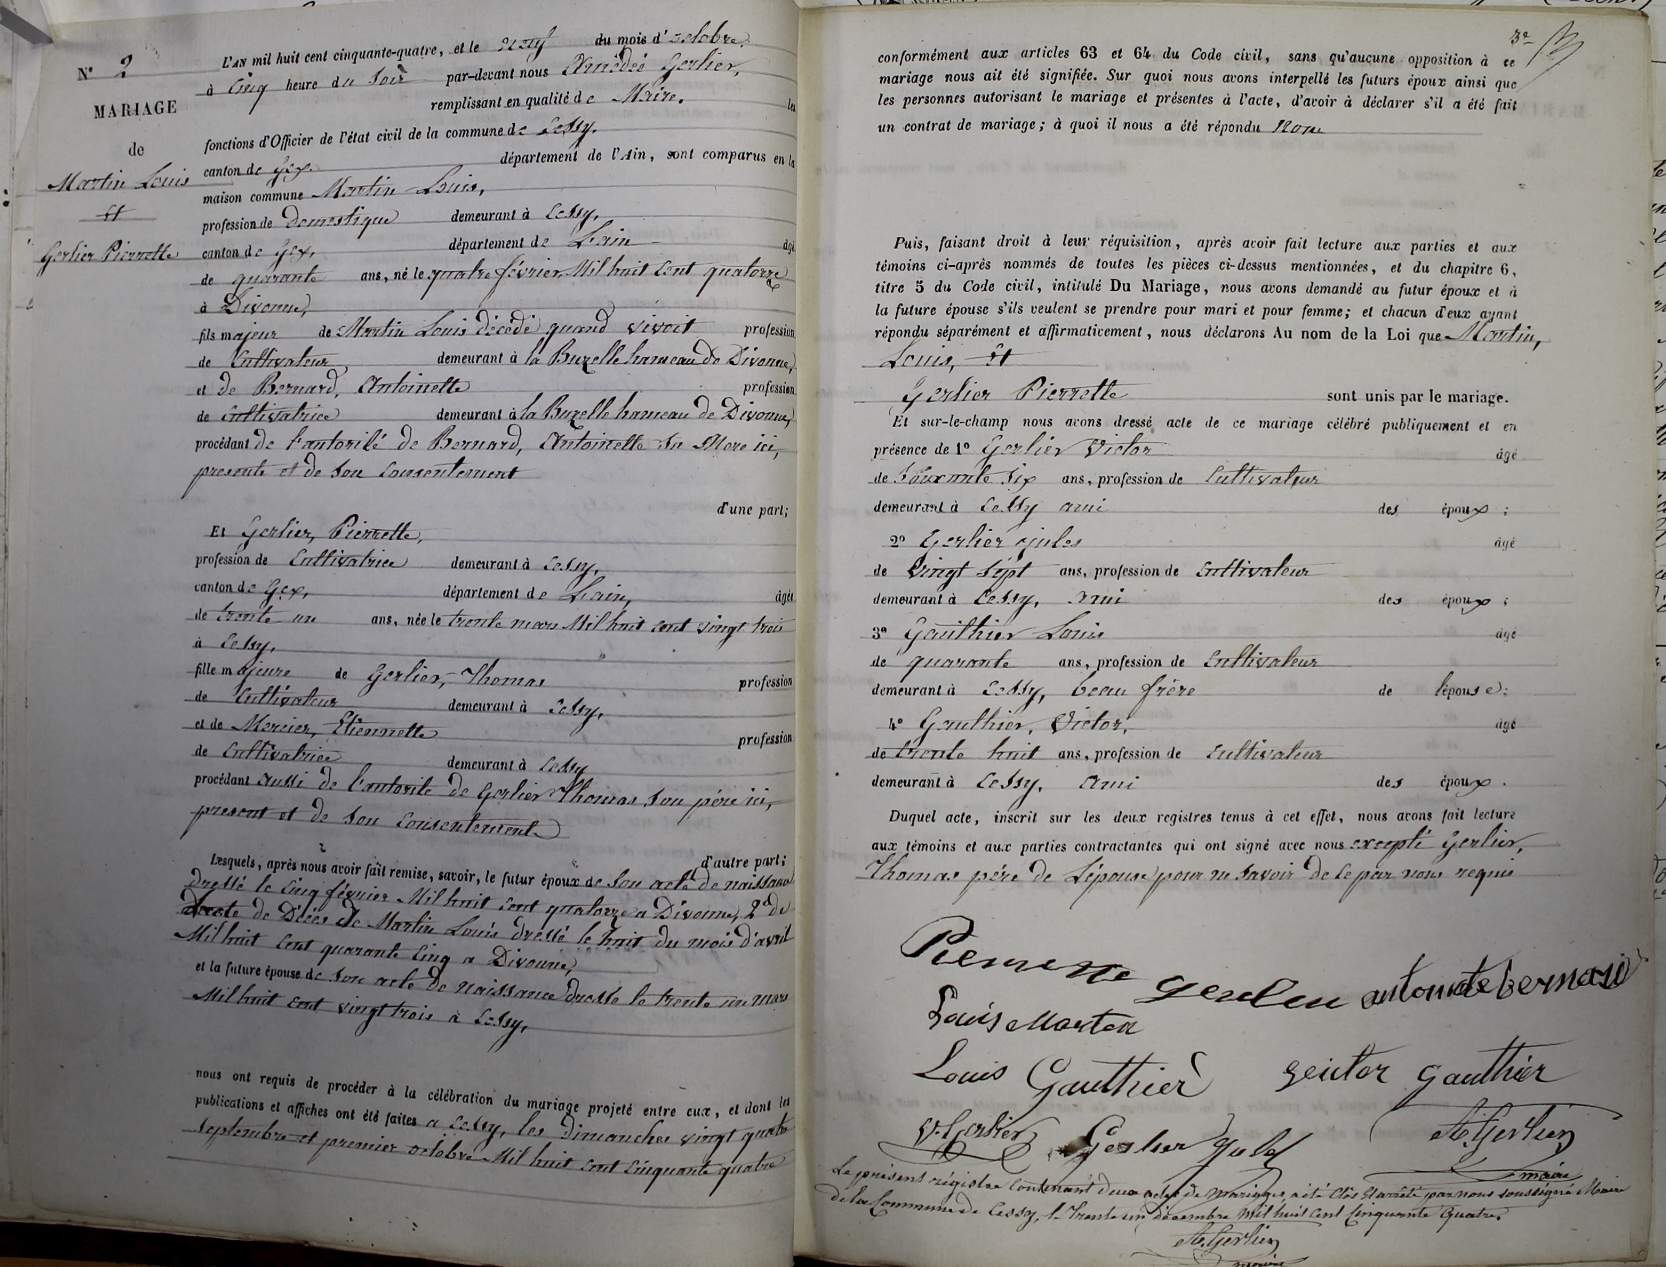 N° 2
MARIAGE
de
Martin Louis
et
Gerlier Pierrette
L'AN mil huit cent cinquante-quatre, et le neuf du mois d'octobre,
à Cinq heure du Soir par-devant nous Amédée Gerlier,
remplissant en qualité de Maire, les
fonctions d'Officier de l'état civil de la commune de Cessy.
canton de Gex. département de l'Ain, sont comparus en la
maison commune Martin Louis,
profession de Domestique demeurant à Cessy,
canton de Gex, département de L'ain âgé
de quarante ans, né le quatre février Mil huit Cent quatorze
à Divonne,
fils majeur de Martin Louis décédé quand vivait profession
de Cultivateur demeurant à la Buzelle hameau de Divonne,
et de Bernard, Antoinette profession
de Cultivatrice demeurant à la Buzelle hameau de Divonne,
procédant de l'autorité de Bernard, Antoinette sa Mere ici,
presente et de son Consentement
d'une part;
Et Gerlier, Pierrette,
profession de Cultivatrice demeurant à Cessy,
canton de Gex, département de L'ain, âgée
de trente un ans, née le trente mars Mil huit cent vingt trois
à Cessy,
fille majeure de Gerlier, Thomas profession
de Cultivateur demeurant à Cessy,
et de Mercier, Etiennette profession
de Cultivatrice demeurant à Cessy
procédant aussi de l'autorité de Gerlier Thomas son père ici,
present et de son Consentement
d'autre part;
Lesquels, après nous avoir fait remise, savoir, le futur époux de son acte de naissance
Dressé le Cinq février Mil huit cent quatorze a Divonne, 2° de
de Décès de Martin Louis dressé le huit du mois d'avril
Mil huit Cent quarante Cinq a Divonne,
et la future épouse de son acte de naissance dressé le trente un mars
Mil huit cent vingt trois à Cessy,
nous ont requis de procéder à la célébration du mariage projeté entre eux, et dont les
publications et affiches ont été faites a Cessy, les dimanches vingt quatre
Septembre et premier octobre Mil huit cent Cinquante quatre
3e
conformément aux articles 63 et 64 du Code civil, sans qu'aucune opposition à ce
mariage nous ait été signifiée. Sur quoi nous avons interpellé les futurs époux ainsi que
les personnes autorisant le mariage et présentes à l'acte, d'avoir à déclarer s'il a été fait
un contrat de mariage; à quoi il nous a été répondu Non
Puis, faisant droit à leur réquisition, après avoir fait lecture aux parties et aux
témoins ci-après nommés de toutes les pièces ci-dessus mentionnées, et du chapitre 6,
titre 5 du Code civil, intitulé Du Mariage, nous avons demandé au futur époux et à
la future épouse s'ils veulent se prendre pour mari et pour femme; et chacun d'eux ayant
répondu séparément et affirmativement, nous déclarons Au nom de la Loi que Martin,
Louis, et
Gerlier Pierrette sont unis par le mariage.
Et sur-le-champ nous avons dressé acte de ce mariage célébré publiquement et en
présence de 1° Gerlier Victor âgé
de Soixante Six ans, profession de Cultivateur
demeurant à Cessy ami des époux;
2° Gerlier Jules âgé
de Vingt Sept ans, profession de Cultivateur
demeurant à Cessy, ami des époux;
3° Gauthier Louis âgé
de quarante ans, profession de Cultivateur
demeurant à Cessy, beau frère de lépouse;
4° Gauthier, Victor, âgé
de trente huit ans, profession de Cultivateur
demeurant à Cessy, ami des époux.
Duquel acte, inscrit sur les deux registres tenus à cet effet, nous avons fait lecture
aux témoins et aux parties contractantes qui ont signé avec nous excepté Gerlier,
Thomas père de L'épouse pour ne savoir de ce par nous requis
Pierrette gerlier antoinete bernard
Louis Marten
Louis Gauthier victor gauthier
V. Gerlier Gerlier Jules A. Gerlier
maire
Le présent régistre Contenant deux actes de mariages, a été Clos et arrêté par nous soussigné Maire
de la Commune de Cessy, le trente un décembre mil huit cent Cinquante Quatre.
A. Gerlier
maire